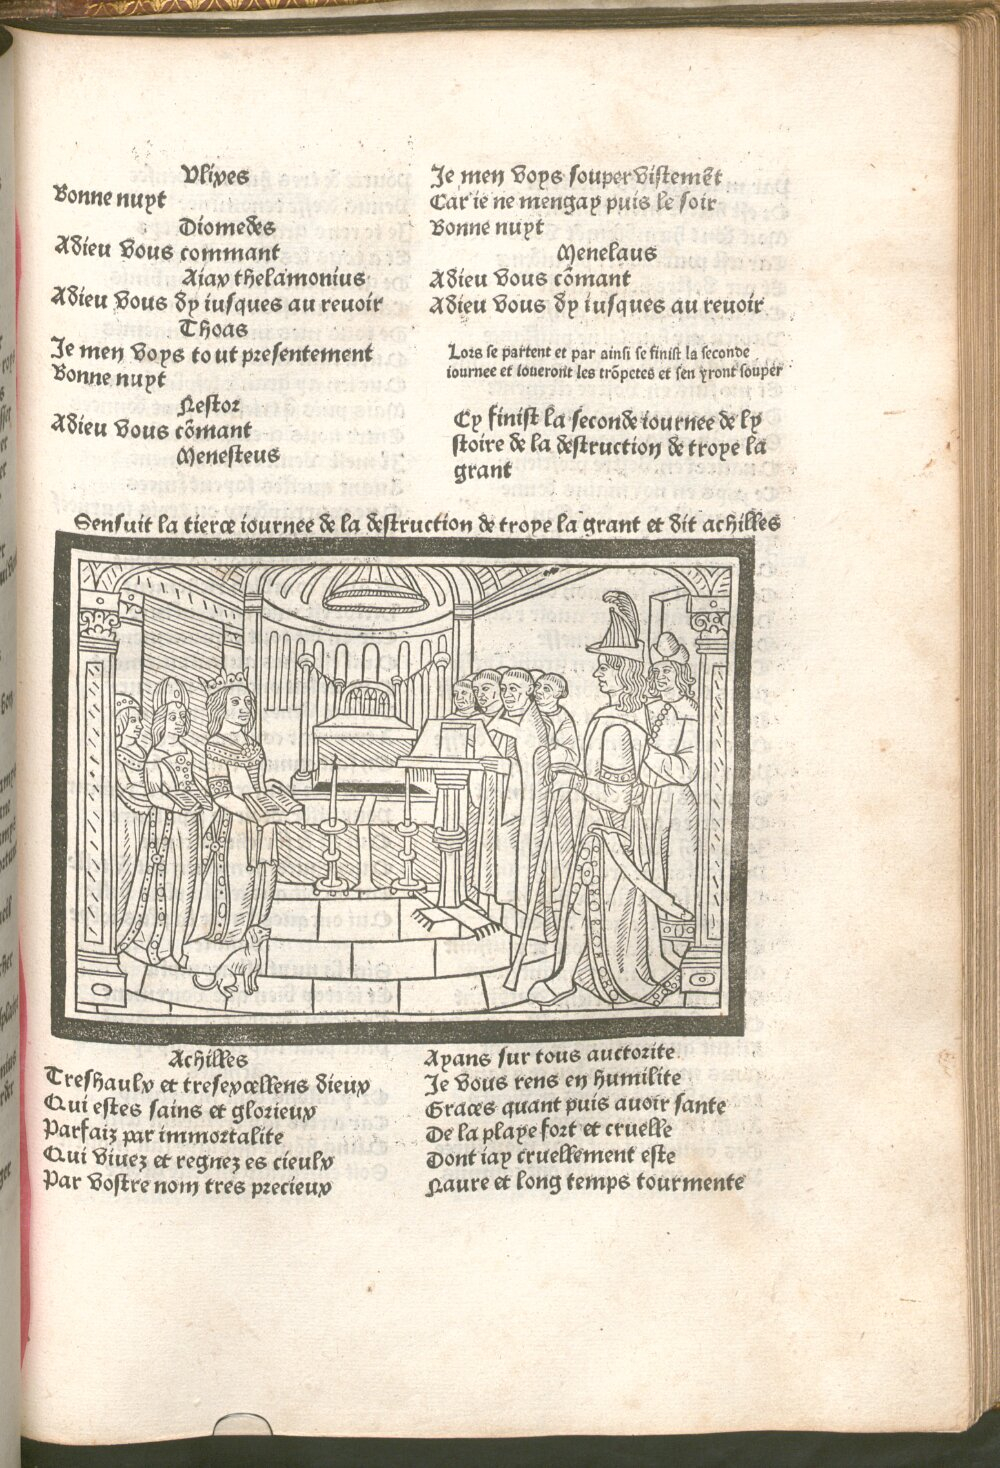 Vlixes
Bonne nuyt
Diomedes
Adieu vous commant
Aiax thelamonius
Adieu vous dy iusques au reuoir
Thoas
Je men voys tout presentement
Bonne nuyt
Nestor
Adieu vous cõmant
Menesteus
Je men voys souper vistemẽt
Car ie ne mengay puis le soir
Bonne nuyt
Menelaus
Adieu vous cõmant
Adieu vous dy iusques au reuoir
Lors se partent et par ainsi se finist la seconde
iournee et ioueront les trõpetes et sen yront souper
Cy finist la seconde iournee de ly
stoire de la destruction de troye la
grant
Sensuit la tierce iournee de la destruction de troye la grant et dit achilles
Achilles
Treshaulx et tresexcellens dieux
Qui estes sains et glorieux
Parfaiz par immortalite
Qui viuez et regnez es cieulx
Par vostre nom tres precieux
Ayans sur tous auctorite
Je vous rens en humilite
Graces quant puis auoir sante
De la playe fort et cruelle
Dont iay cruellement este
Naure et long temps tourmente